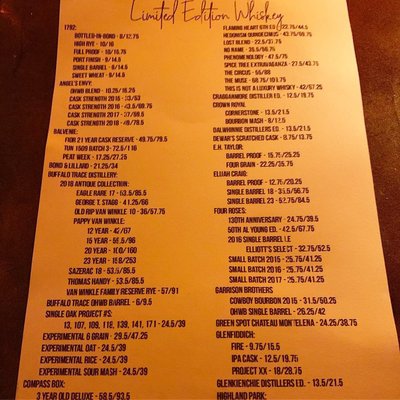 Limited Edition Whiskey
1792:
BOTTLED-IN-BOND - 8/12.75
HIGH RYE - 10/16
FULL PROOF - 10/16.75
PORT FINISH - 9/14.5
SINGLE BARREL - 9/14.5
SWEET WHEAT - 9/14.5
ANGEL'S ENVY:
OHWB BLEND - 10.25/16.25
CASK STRENGTH 2015 - 33/53
CASK STRENGTH 2016 - 43.5/69.75
CASK STRENGTH 2017 - 37/59.5
CASK STRENGTH 2018 - 49/78.5
BALVENIE:
FOR 21 YEAR CASK RESERVE - 49.75/79.5
TUN 1509 BATCH 3 - 72.5/116
PEAT WEEK - 17.25/27.25
BOND & LILLARD - 21.25/34
BUFFALO TRACE DISTILLERY:
2018 ANTIQUE COLLECTION:
EAGLE RARE 17 - 53.5/85.5
GEORGE T. STAGG - 41.25/66
OLD RIP VAN WINKLE 10 - 36/57.75
PAPPY VAN WINKLE:
12 YEAR - 42/67
15 YEAR - 
20 YEAR - 100/160
23 YEAR - 
SAZERAC 18 - 53.5/85.5
THOMAS HANDY - 53.5/85.5
VAN WINKLE FAMILY RESERVE RYE - 57/91
BUFFALO TRACE OHWB BARREL - 6/9.5
SINGLE OAK PROJECT #S:
13, 107, 109, 118, 139, 141, 171 - 24.5/39
EXPERIMENTAL 6 GRAIN - 29.5/47.25
EXPERIMENTAL OAT - 24.5/39
EXPERIMENTAL RICE - 24.5/39
EXPERIMENTAL SOUR MASH - 24.5/39
COMPASS BOX:
3 YEAR OLD DELUXE - 58.5/93.5
FLAMING HEART 6TH ED - 
HEDONISM QUINDECIMUS - 43.75/69.75
LOST BLEND - 
NO NAME - 
PHENOMENOLOGY - 
SPICE TREE EXTRAVAGANZA - 27.5/43.75
THE CIRCUS - 55/88
THE MUSE - 
THIS IS NOT A LUXURY WHISKY - 42/67.25
CRAGGANMORE DISTILLER ED. - 
CROWN ROYAL
CORNERSTONE - 13.5/21.5
BOURBON MASH - 8/12.5
DALWHINNIE DISTILLERS ED. - 13.5/21.5
DEWAR'S SCRATCHED CASK - 8.75/13.75
E.H. TAYLOR:
BARREL PROOF - 15.75/25.25
FOUR GRAIN - 22.25/35.75
ELIJAH CRAIG:
BARREL PROOF - 
SINGLE BARREL 18 - 
SINGLE BARREL 23 - 
FOUR ROSES:
130TH ANNIVERSARY - 24.75/39.5
50TH AL YOUNG ED. - 42.5/67.75
2016 SINGLE BARREL LE
ELLIOTT'S SELECT - 32.75/52.5
SMALL BATCH 2015 - 25.75/41.25
SMALL BATCH 2016 - 25.75/41.25
SMALL BATCH 2017 - 25.75/41.25
GARRISON BROTHERS
COWBOY BOURBON 2015 - 31.5/50.25
OHWB SINGLE BARREL - 26.25/42
GREEN SPOT CHATEAU MONTELENA - 24.25/38.75
GLENFIDDICH:
FIRE - 9.75/15.5
IPA CASK - 12.5/19.75
PROJECT XX - 18/28.75
GLENKIENCHIE DISTILLERS ED. - 13.5/21.5
HIGHLAND PARK: